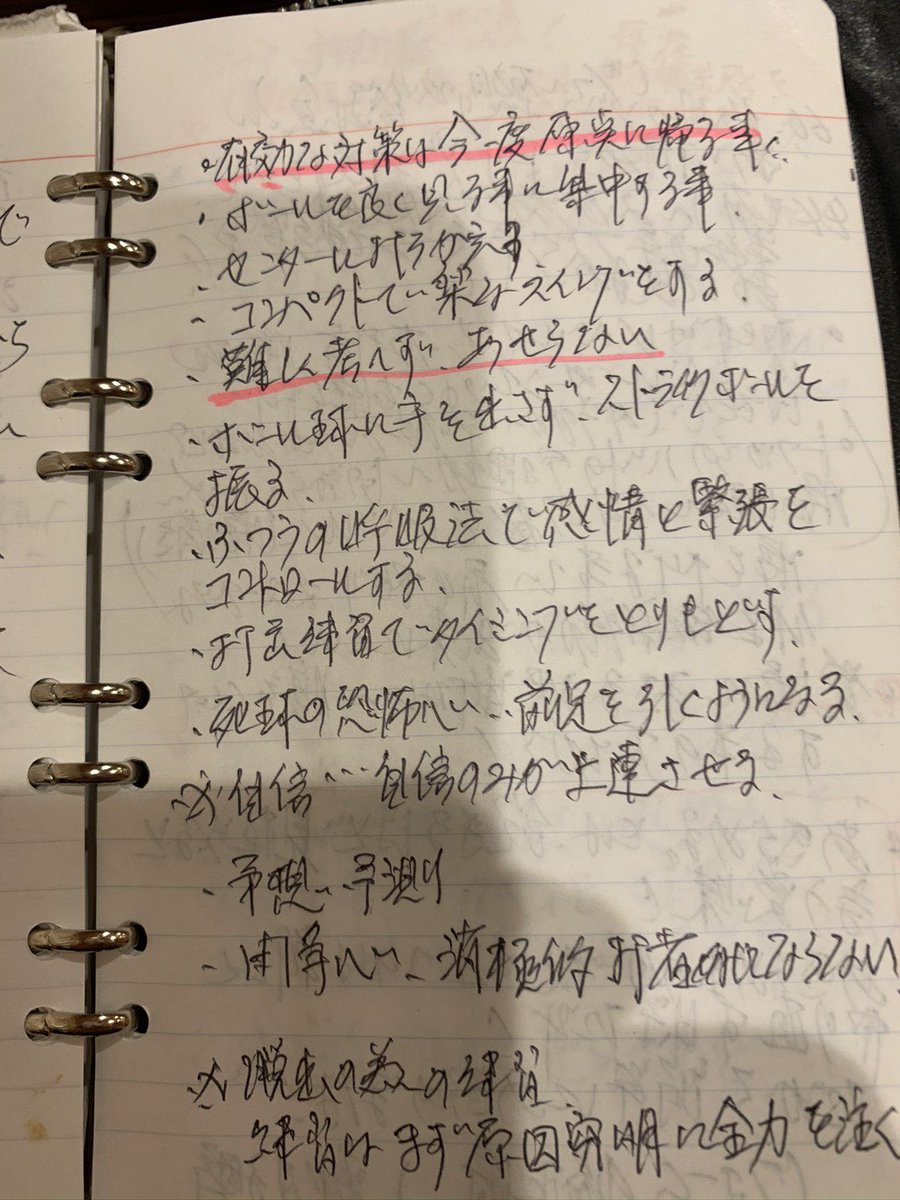 ・有効な対策は今一度原点に帰る事。
・ボールを良く見る事に集中する事.
・センターに打ちかえす
・コンパクトで楽なスイングをする.
・難しく考へず、あせらない
・ボール球に手を出さず、ストライクボールを
振る.
・ふつうの呼吸法で感情と緊張を
コントロールする.
・打法練習でタイミングをとりもどす.
・死球の恐怖心、前足を引くようになる.
※自信…自信のみが上達させる.
・予想、予測
・闘争心、消極的打者
※脱出の為の練習.
練習はまず原因究明に全力を注ぐ
で
ち